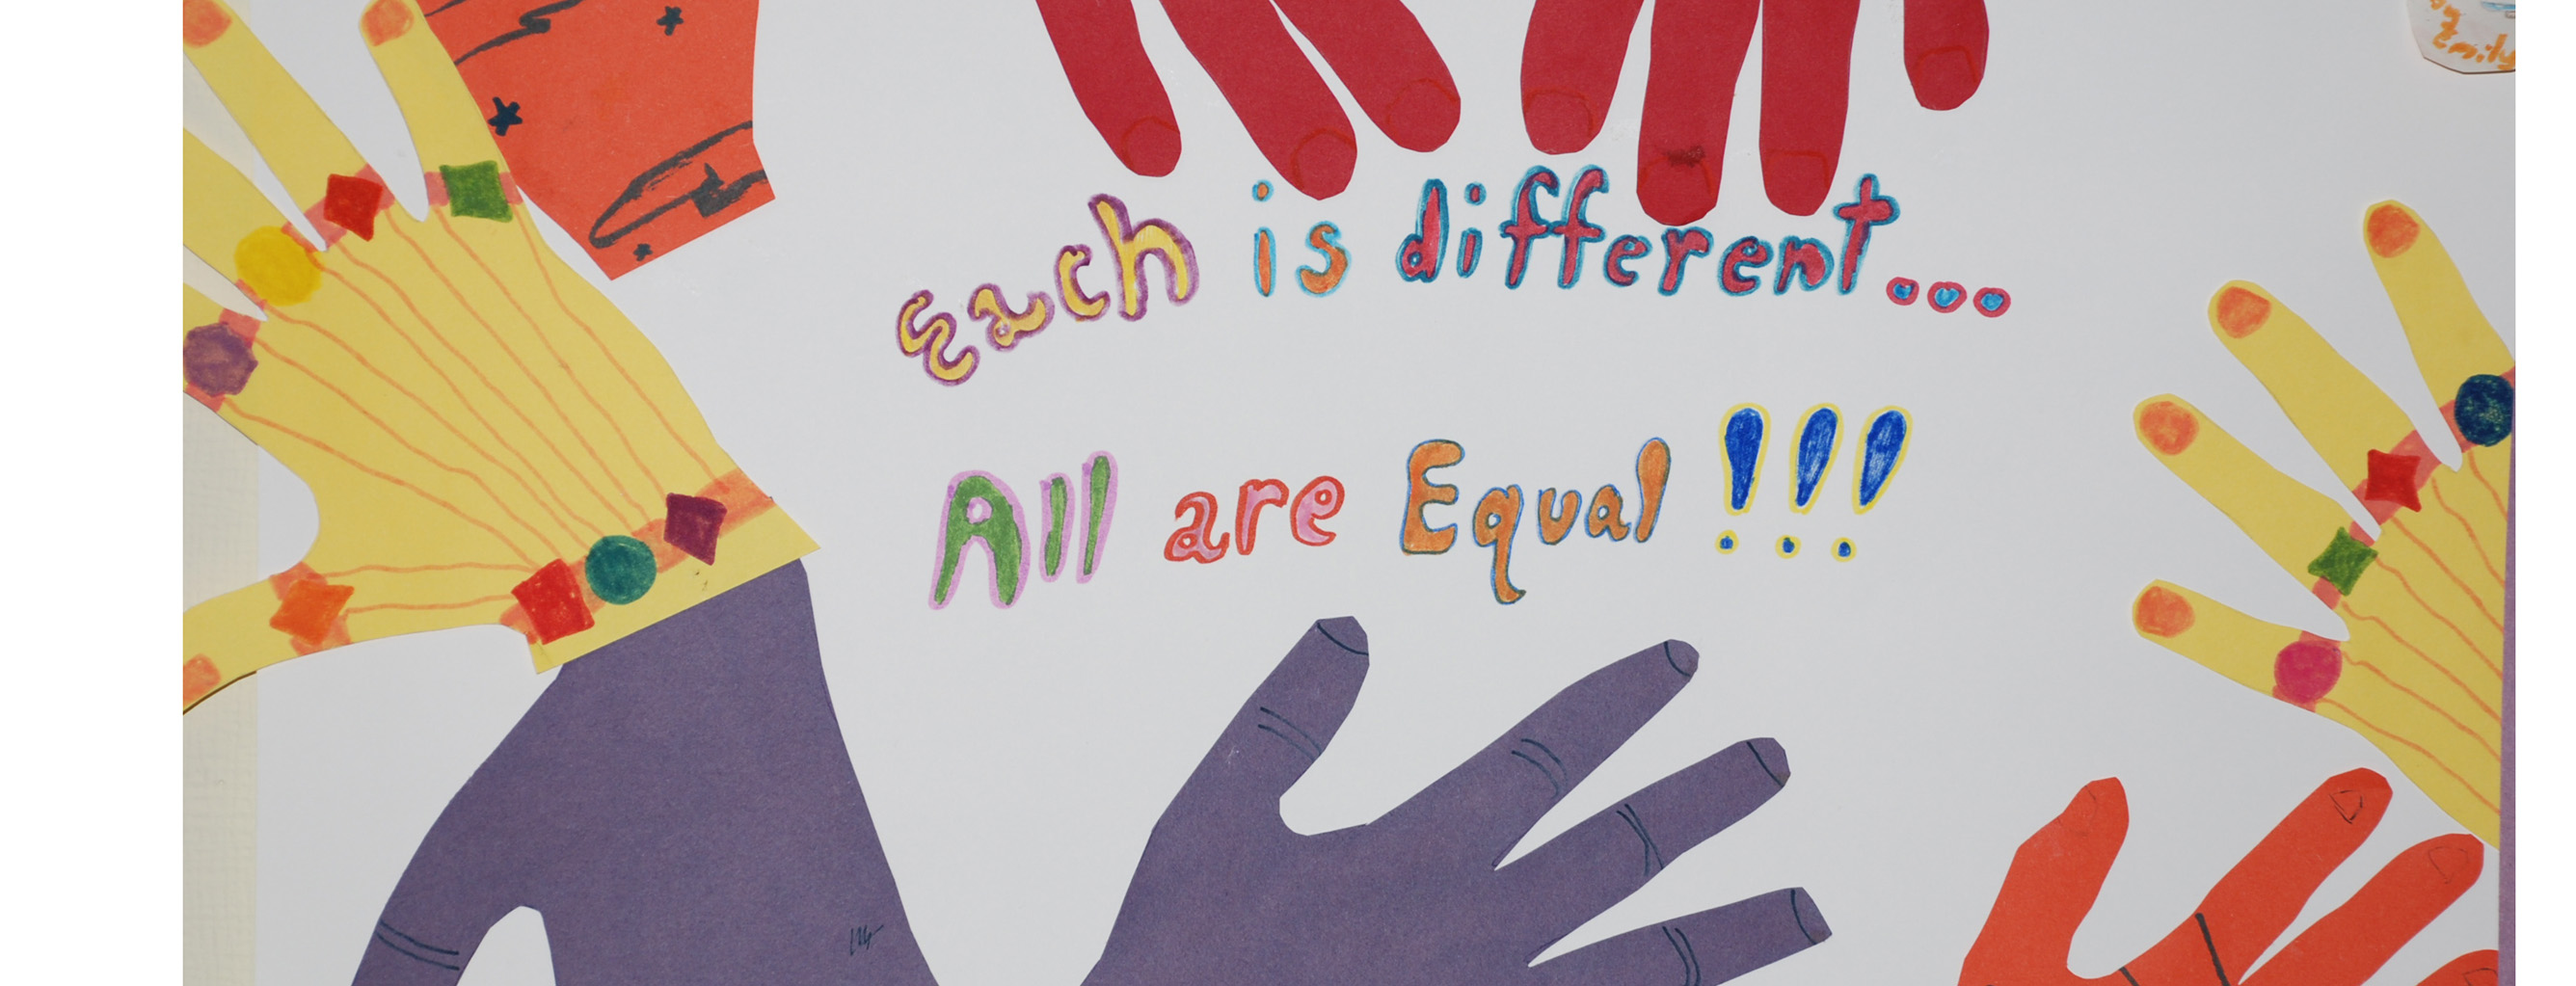 Each is different...
All are Equal !!!